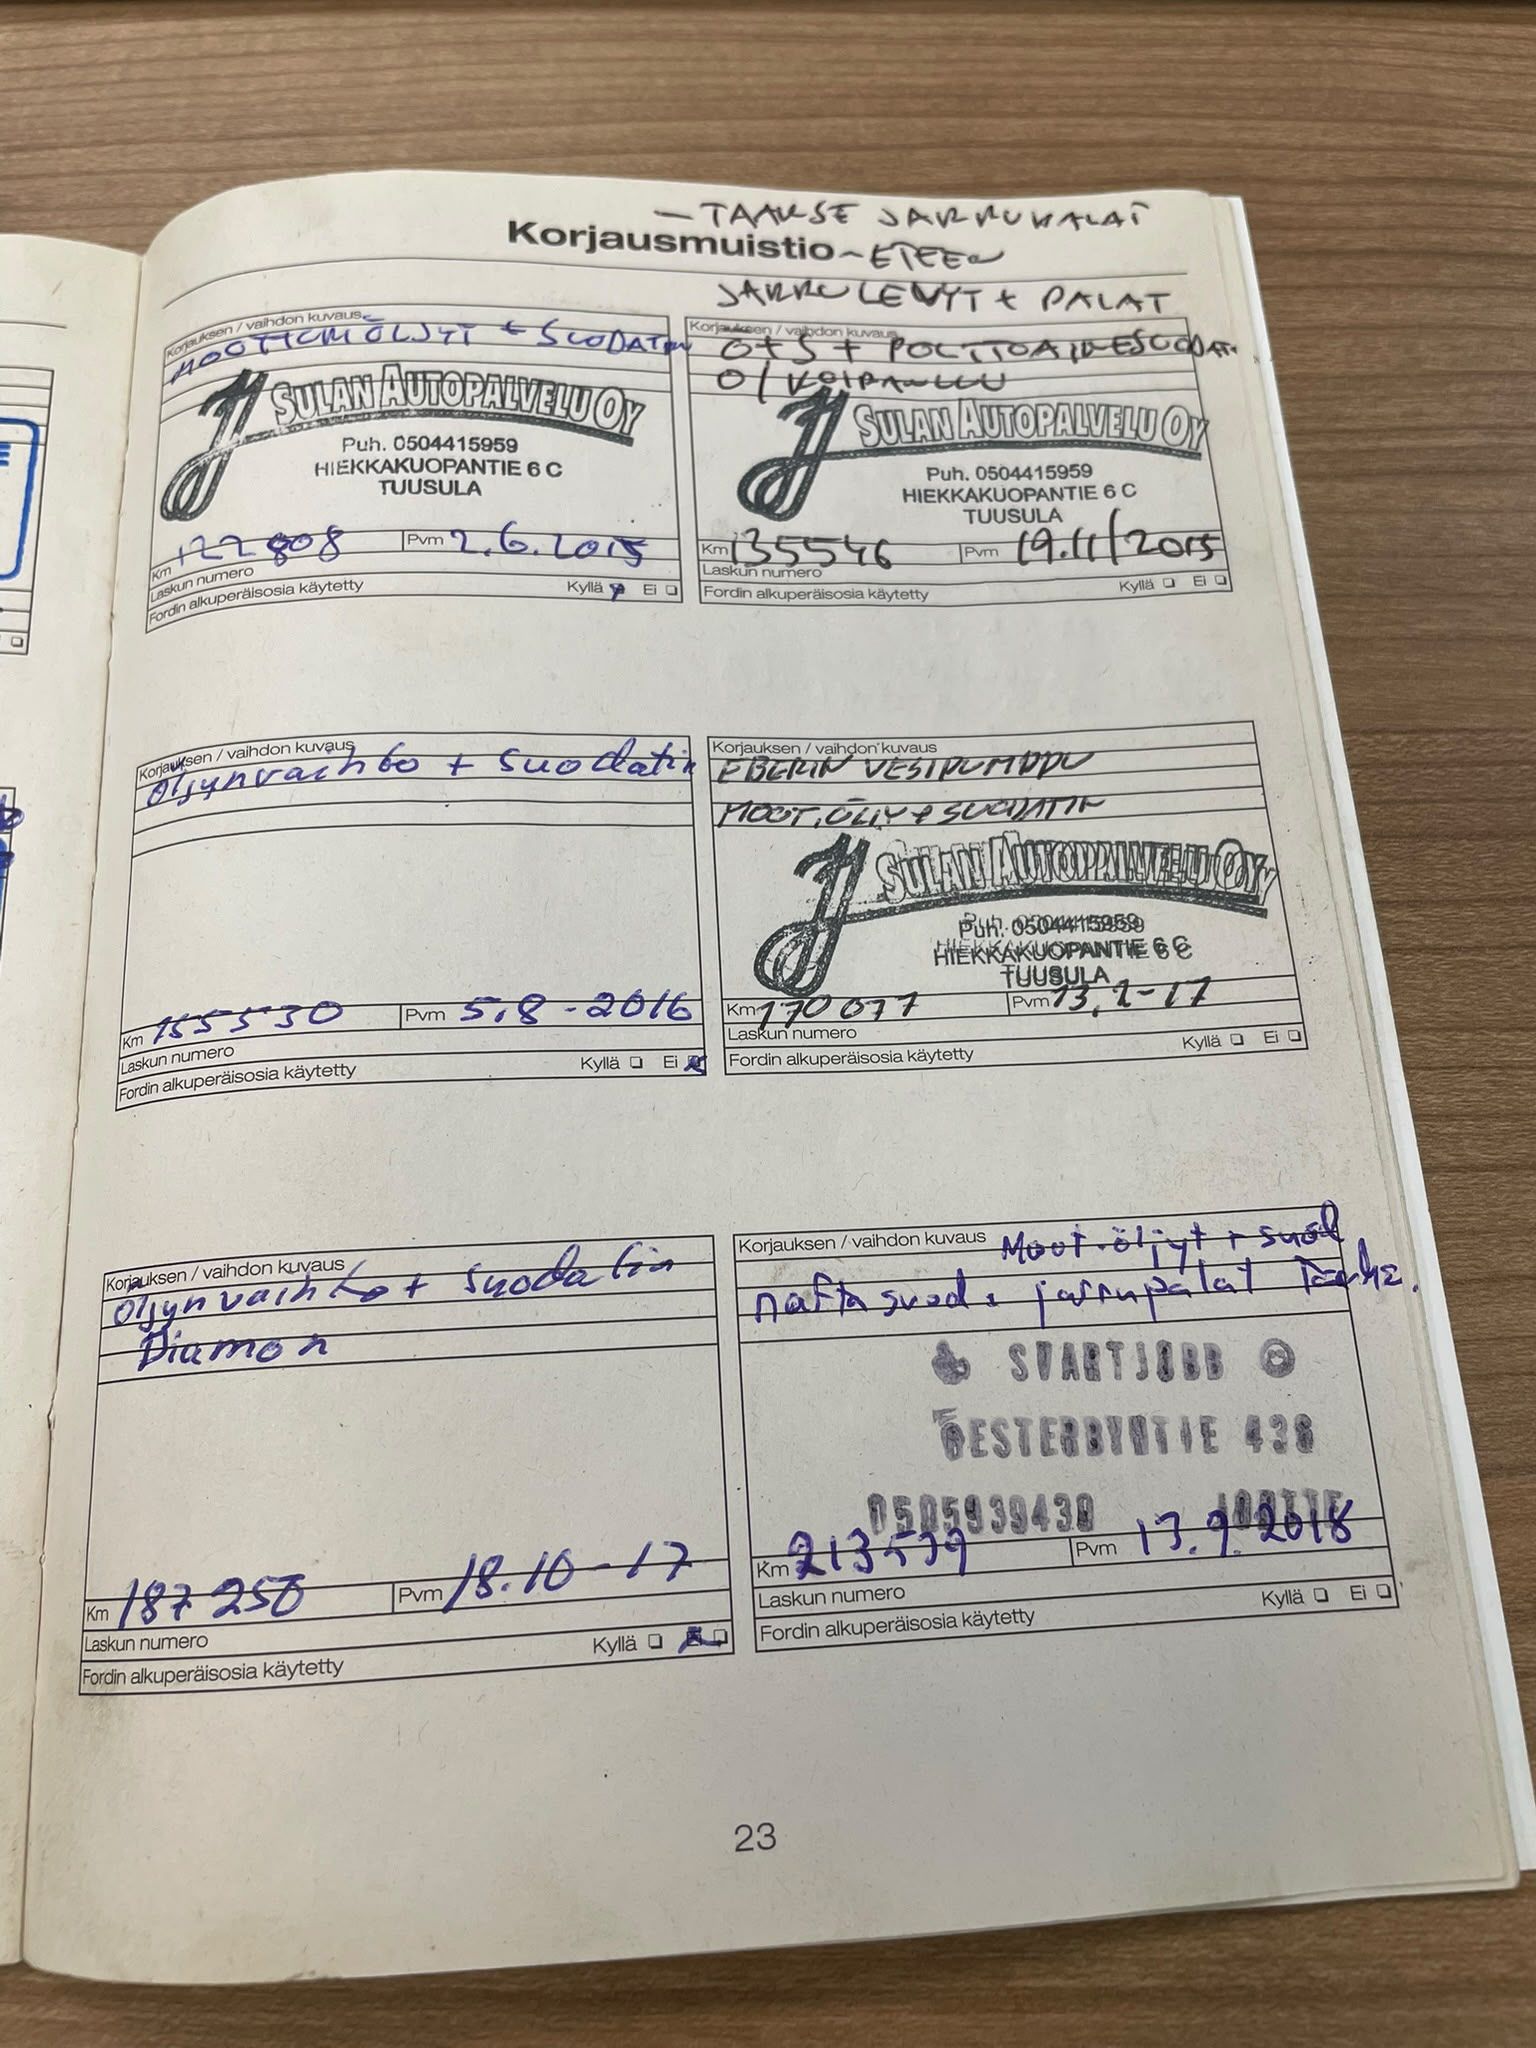 — TAAKSE JARRUPALAT
Korjausmuistio
- ETEEN
JARRULEVYT + PALAT
Korjauksen / vaihdon kuvaus
MOOTTORIÖLJYT + SUODATIN
SULAN AUTOPALVELU OY
Puh. 0504415959
HIEKKAKUOPANTIE 6 C
TUUSULA
Km 122808 Pvm 2.6.2015
Laskun numero
Fordin alkuperäisosia käytetty Kyllä Ei
Korjauksen / vaihdon kuvaus
O+S + POLTTOAINESUODAT.
SULAN AUTOPALVELU OY
Puh. 0504415959
HIEKKAKUOPANTIE 6 C
TUUSULA
Km 135546 Pvm 19.11/2015
Laskun numero
Fordin alkuperäisosia käytetty Kyllä Ei
Korjauksen / vaihdon kuvaus
öljynvaihto + suodatin
Km 155530 Pvm 5.8-2016
Laskun numero
Fordin alkuperäisosia käytetty Kyllä Ei
Korjauksen / vaihdon kuvaus
EBERIN VESIPUMPPU
MOOT.ÖLJY + SUODATIN
SULAN AUTOPALVELU OY
Puh. 0504415959
HIEKKAKUOPANTIE 6 C
TUUSULA
Km 170077 Pvm
Laskun numero
Fordin alkuperäisosia käytetty Kyllä Ei
Korjauksen / vaihdon kuvaus
öljynvaihto + suodatin
Diamon
Km 187250 Pvm 18.10-17
Laskun numero
Fordin alkuperäisosia käytetty Kyllä
Korjauksen / vaihdon kuvaus Moot.öljyt + suod
nafta suod. jarrupalat
SVARTJOBB
0505939430
Km 213539 Pvm 13.9.2018
Laskun numero
Fordin alkuperäisosia käytetty Kyllä Ei
23